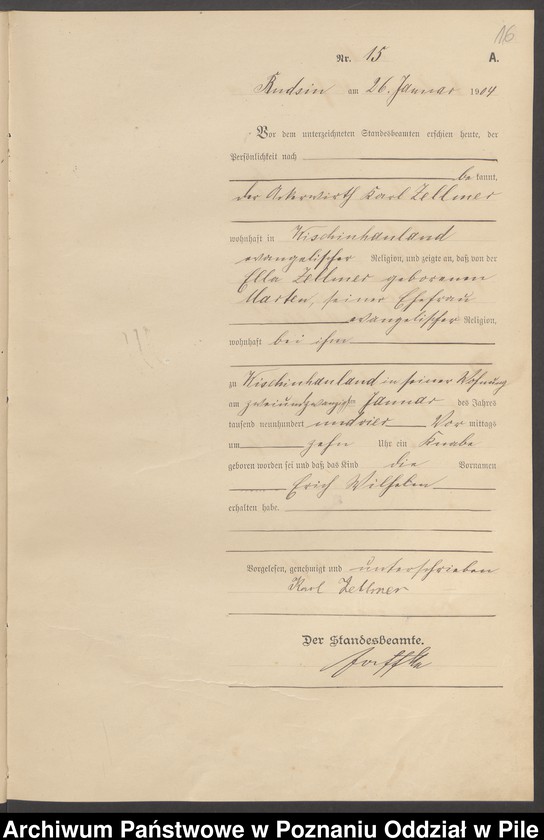 16
Nr. 15 A.
Rudsin am 26. Januar 1904
Vor dem unterzeichneten Standesbeamten erschien heute, der
Persönlichkeit nach
be kannt,
der Ackerwirth Karl Zellmer
wohnhaft in Wischinhauland
evangelischer Religion, und zeigte an, daß von der
Ella Zellmer geborenen
Marten, seiner Ehefrau
evangelischer Religion,
wohnhaft bei ihm
zu Wischinhauland in seiner Wohnung
am zweiundzwanzigsten Januar des Jahres
tausend neunhundert und vier Vor mittags
um zehn Uhr ein Knabe
geboren worden sei und daß das Kind die Vornamen
Erich Wilhelm
erhalten habe.
Vorgelesen, genehmigt und unterschrieben
Karl Zellmer
Der Standesbeamte.
Archiwum Państwowe w Poznaniu Oddział w Pile